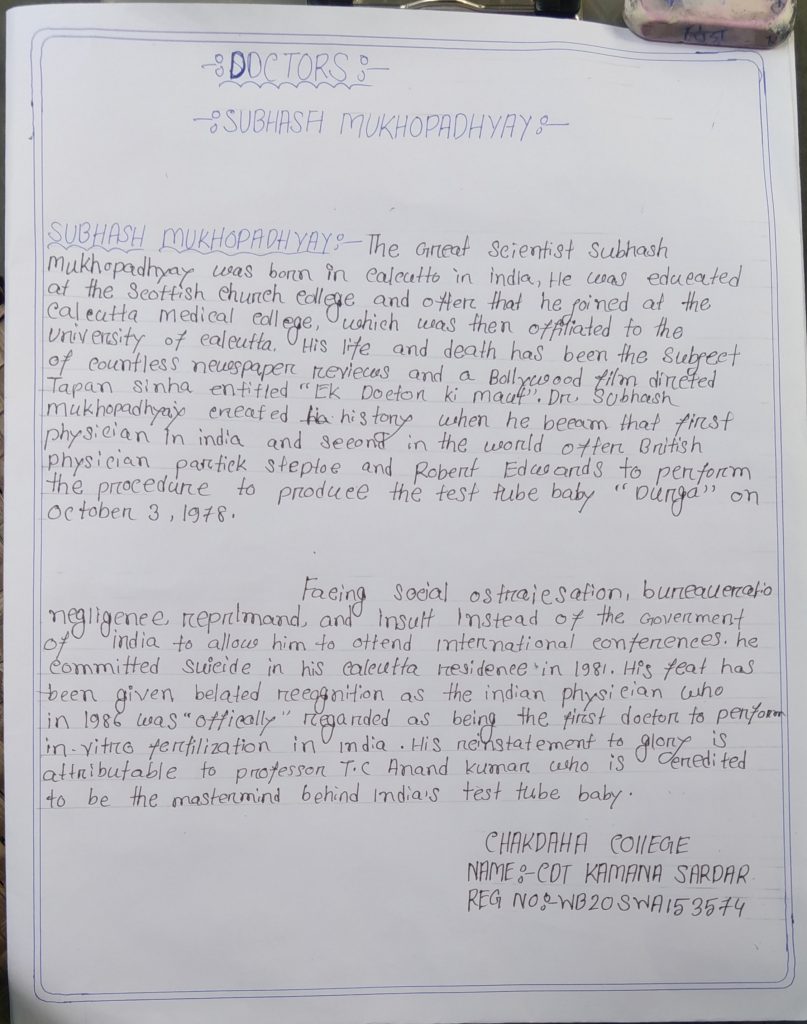 DOCTORS :-
SUBHASH MUKHOPADHYAY :-
SUBHASH MUKHOPADHYAY :- The Great Scientist Subhash
Mukhopadhyay was born in calcutto in india, He was educated
at the Scottish church college and often that he joined at the
calcutta medical college, which was then offiliated to the
University of calcutta. His life and death has been the Subject
of countless newspaper reviews and a Bollywood film directed
Tapan Sinha entitled "EK Doctor ki maut". Dr. Subhash
mukhopadhyay created history when he becam that first
physician in india and second in the world often British
physician partick steptoe and Robert Edwards to perform
the procedure to produce the test tube baby "Durga" on
October 3, 1978.
Facing social ostraiesation, bureaucratio
negligence, reprimand, and Insult Instead of the Goverment
of india to allow him to ottend international conferences. he
committed Suicide in his calcutta residence in 1981. His feat has
been given belated recognition as the indian physician who
in 1986 was "offically" regarded as being the first doctor to perform
in-vitro fertilization in india. His reinstatement to glory is
attributable to professor T.C Anand kumar who is credited
to be the mastermind behind India's test tube baby.
CHAKDAHA COllEGE
NAME :- CDT KAMANA SARDAR
REG NO :- WB20SWA153574